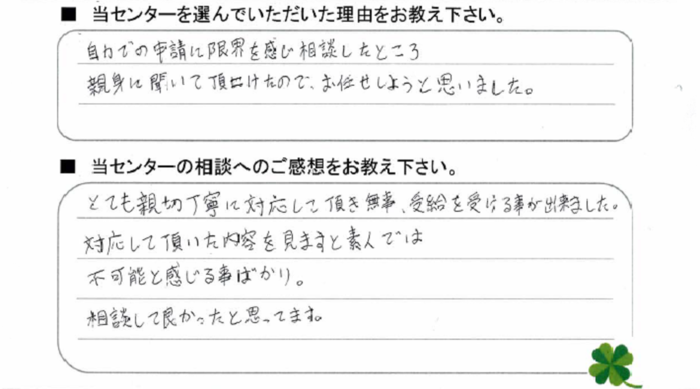 ■ 当センターを選んでいただいた理由をお教え下さい。
自力での申請に限界を感じ相談したところ
親身に聞いて頂けたので、お任せしようと思いました。
■ 当センターの相談へのご感想をお教え下さい。
とても親切丁寧に対応して頂き無事、受給を受ける事が出来ました。
対応して頂いた内容を見ますと素人では
不可能と感じる事ばかり。
相談して良かったと思ってます。